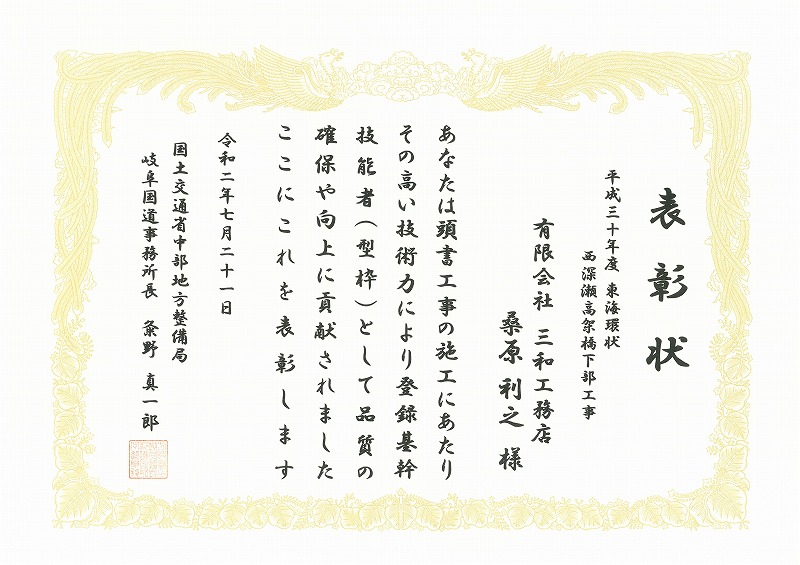 表彰状
平成三十年度 東海環状
西深瀬高架橋下部工事
有限会社 三和工務店
桑原利之 様
あなたは頭書工事の施工にあたり
その高い技術力により登録基幹
技能者(型枠)として品質の
確保や向上に貢献されました
ここにこれを表彰します
令和二年七月二十一日
国土交通省中部地方整備局
岐阜国道事務所長 粂野 真一郎